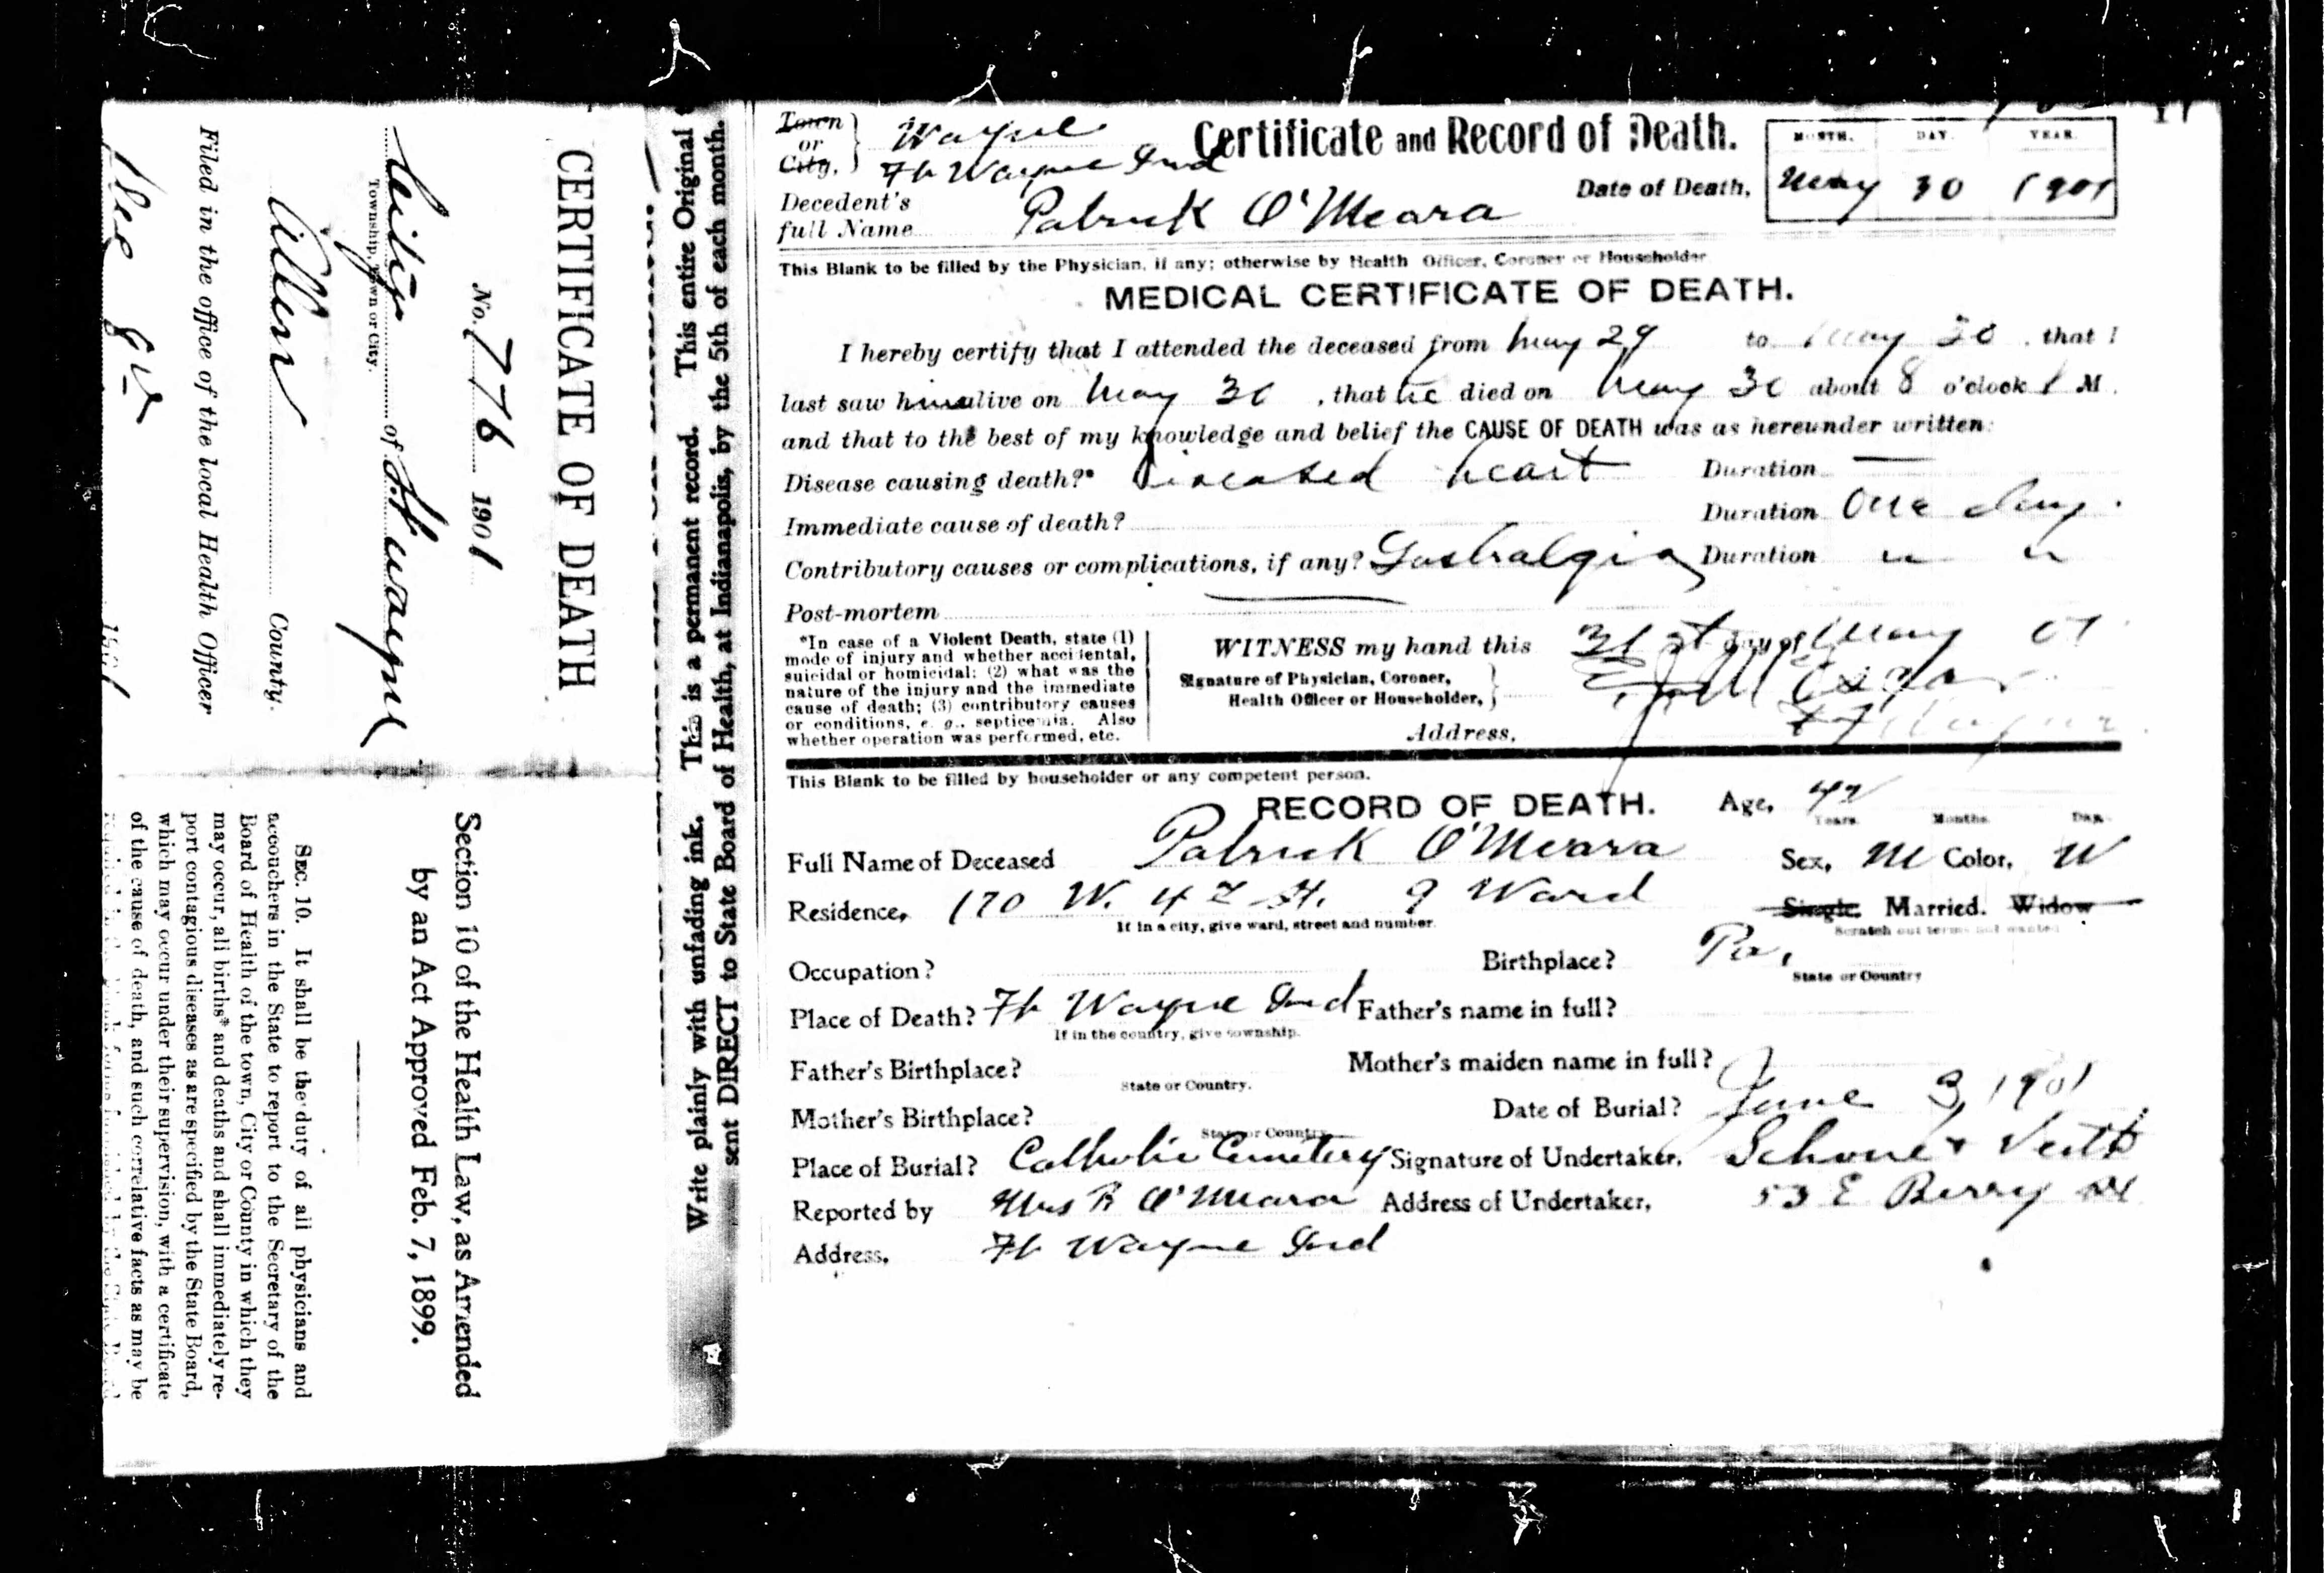 CERTIFICATE OF DEATH
No. 776 1901
City of Ft Wayne
Township, Town or City.
Allen County.
Filed in the office of the local Health Officer
1901
Section 10 of the Health Law, as Amended
by an Act Approved Feb. 7, 1899.
SEC. 10. It shall be the duty of all physicians and
accouchers in the State to report to the Secretary of the
Board of Health of the town, City or County in which they
may occur, all births* and deaths and shall immediately re-
port contagious diseases as are specified by the State Board,
which may occur under their supervision, with a certificate
of the cause of death, and such correlative facts as may be
Write plainly with unfading ink. This is a permanent record. This entire Original
sent DIRECT to State Board of Health, at Indianapolis, by the 5th of each month.
Town
or
City, Wayne
Ft Wayne Ind
Certificate and Record of Death.
MONTH. DAY. YEAR
Date of Death, May 30 1901
Decedent's
full Name Patrick O'Meara
This Blank to be filled by the Physician, if any; otherwise by Health Officer, Coroner or Householder
MEDICAL CERTIFICATE OF DEATH.
I hereby certify that I attended the deceased from May 29 to May 30, that I
last saw him alive on May 30, that he died on May 30 about 8 o'clock M.
and that to the best of my knowledge and belief the CAUSE OF DEATH was as hereunder written:
Disease causing death?* Diseased heart Duration —
Immediate cause of death? Duration One day.
Contributory causes or complications, if any? Gastralgia Duration " "
Post-mortem
*In case of a Violent Death, state (1)
mode of injury and whether accidental,
suicidal or homicidal; (2) what was the
nature of the injury and the immediate
cause of death; (3) contributory causes
or conditions, e. g., septicemia. Also
whether operation was performed, etc.
WITNESS my hand this 31st day of May 01
Signature of Physician, Coroner,
Health Officer or Householder,
Address, Ft Wayne
This Blank to be filled by householder or any competent person.
RECORD OF DEATH. Age, 42
Years. Months. Days.
Full Name of Deceased Patrick O'Meara Sex, M Color, W
Residence, 170 W. 4th St. 9 Ward Single. Married. Widow
If in a city, give ward, street and number. Scratch out terms not wanted
Occupation? Birthplace? Pa,
State or Country
Place of Death? Ft Wayne Ind Father's name in full?
If in the country, give township.
Father's Birthplace? Mother's maiden name in full?
State or Country.
Mother's Birthplace? Date of Burial? June 3, 1901
State or Country
Place of Burial? Catholic Cemetery Signature of Undertaker, Schone & Veith
Reported by Mrs P. O'Meara Address of Undertaker, 53 E Berry St
Address, Ft Wayne Ind